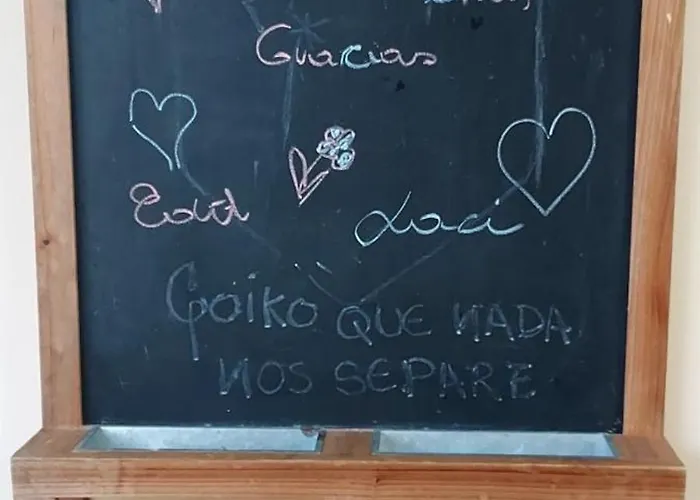 Gracias
Edit
Laci
Goiko QUE NADA
NOS SEPARE